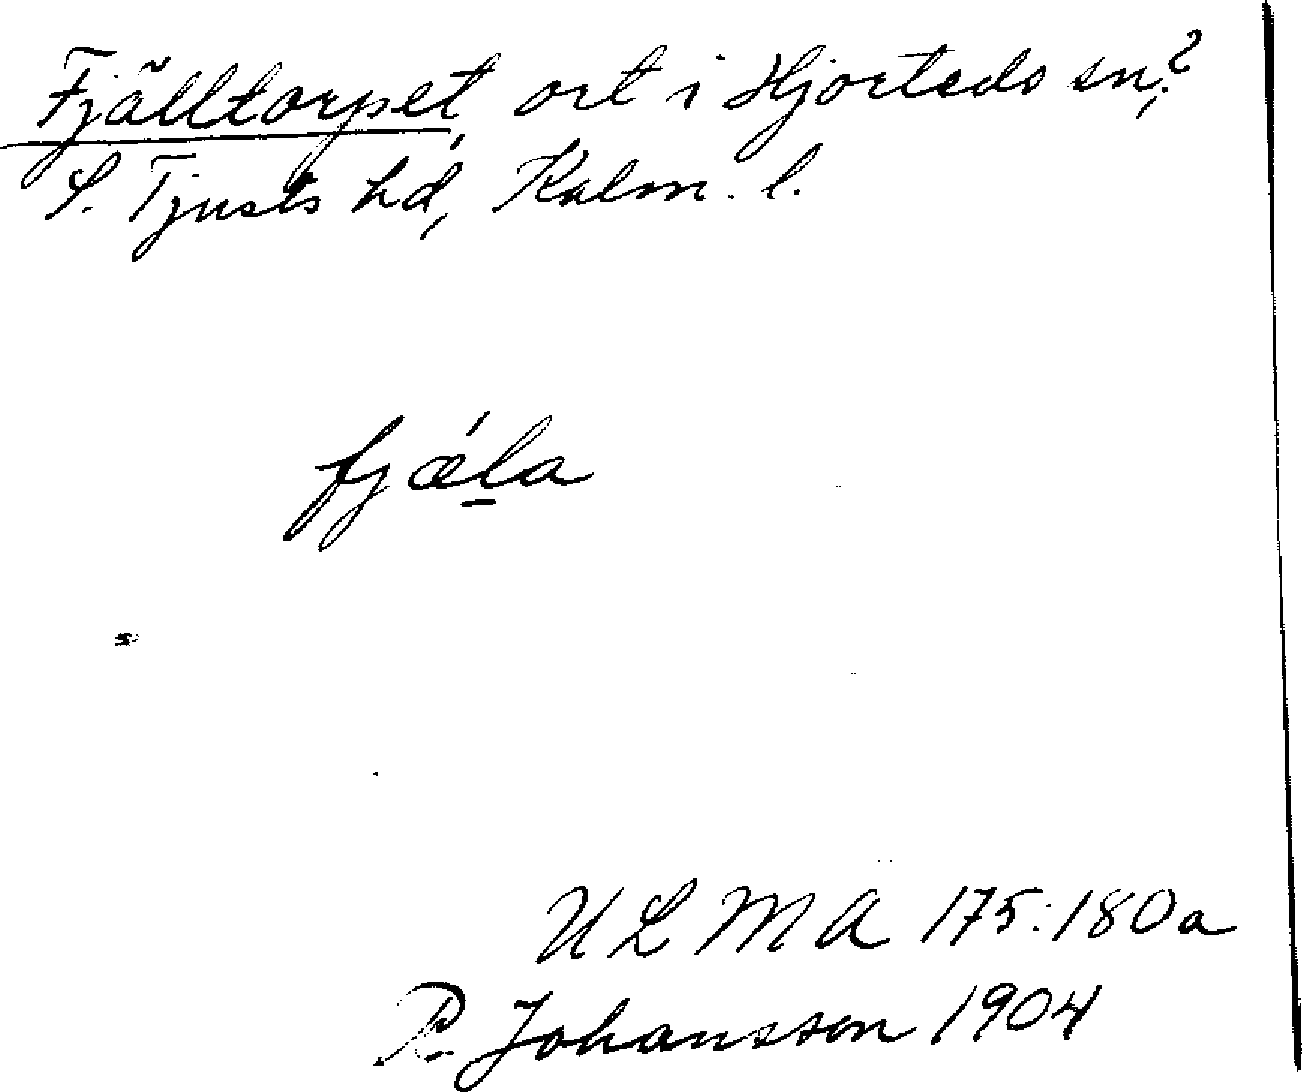 Fjälltorpet, ort i Hjorteds sn,?
S. Tjusts hd, Kalm. l.
fjǽl̲a
ULMA 175:180a
R. Johansson 1904